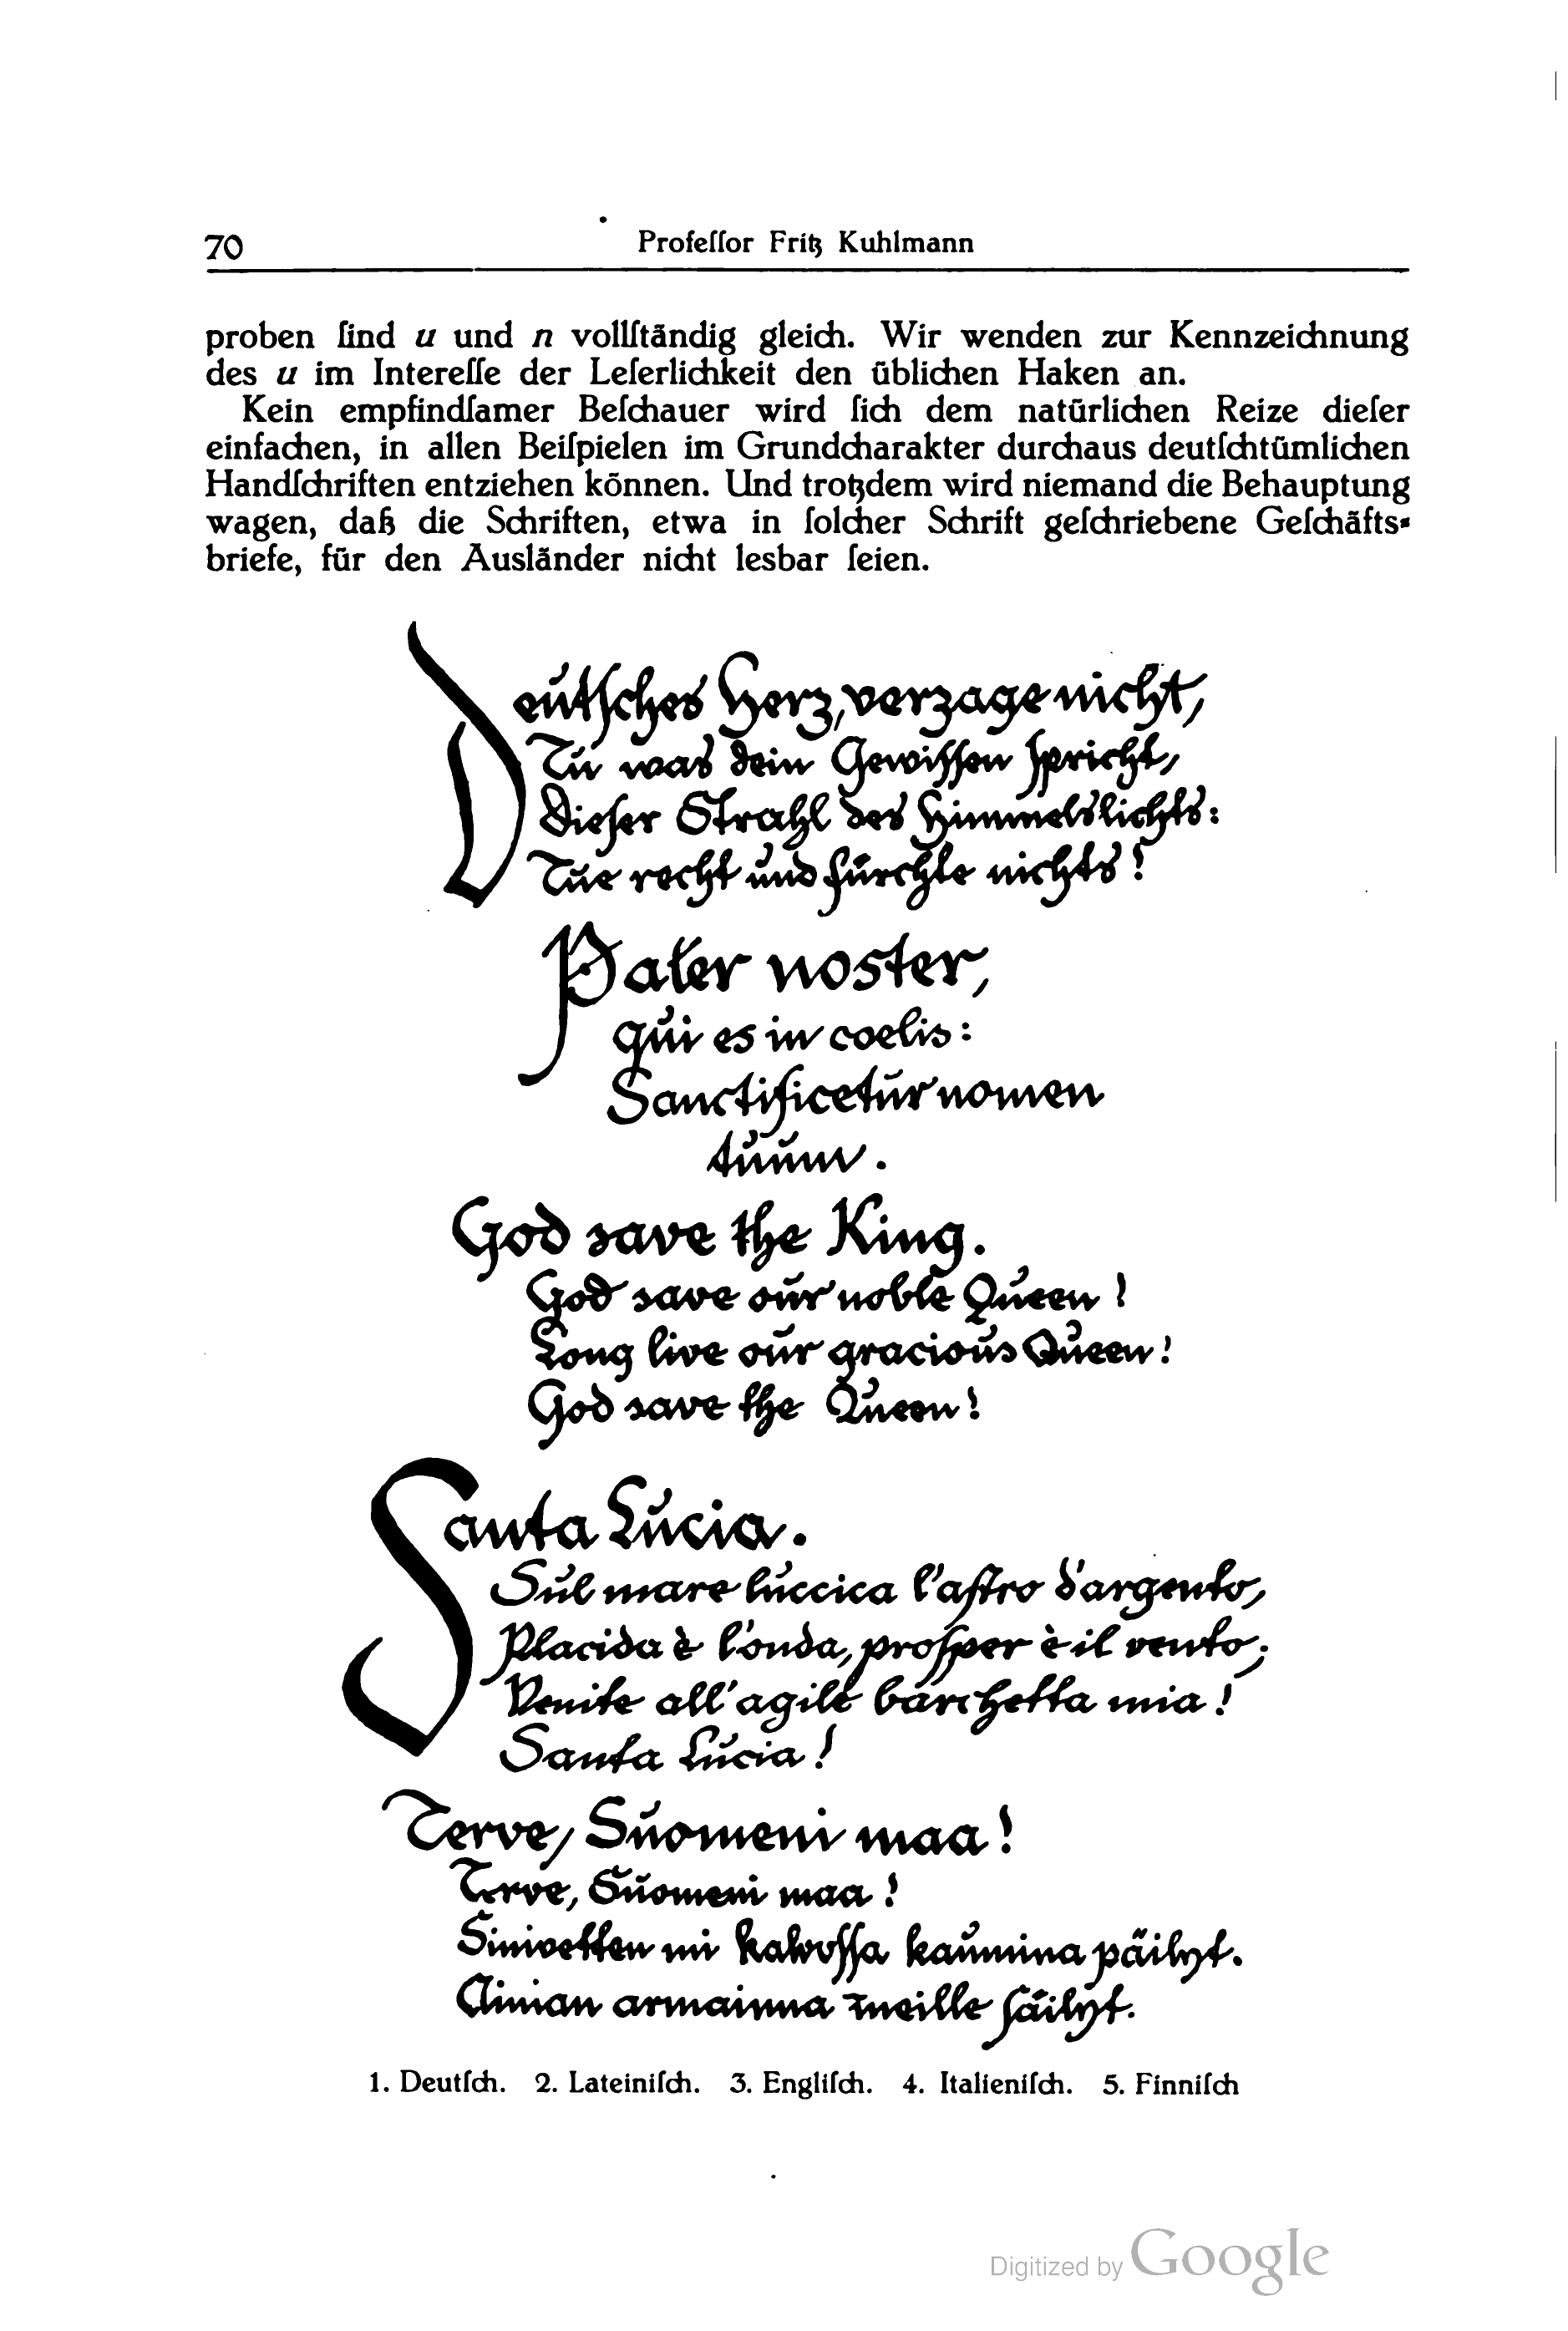 70
Profeſſor Fritz Kuhlmann
proben ſind u und n vollſtändig gleich. Wir wenden zur Kennzeichnung
des u im Intereſſe der Leſerlichkeit den üblichen Haken an.
Kein empfindſamer Beſchauer wird ſich dem natürlichen Reize dieſer
einfachen, in allen Beiſpielen im Grundcharakter durchaus deutſchtümlichen
Handſchriften entziehen können. Und trotzdem wird niemand die Behauptung
wagen, daß die Schriften, etwa in ſolcher Schrift geſchriebene Geſchäfts-
briefe, für den Ausländer nicht lesbar ſeien.
Deutſches Herz, verzage nicht,
Tu was dein Gewiſſen ſpricht,
Dieſer Strahl des Himmelslichts:
Tue recht und fürchte nichts!
Pater noster,
qui es in coelis:
Sanctificetur nomen
tuum.
God save the King.
God save our noble Queen!
Long live our gracious Queen!
God save the Queen!
Santa Lucia.
Sul mare luccica l'aſtro d'argento,
Placida è l'onda, proſper è il vento;
Venite all'agile barchetta mia!
Santa Lucia!
Terve, Suomeni maa!
Terve, Suomeni maa!
Sinivetten ni kalvoſſa kaumina päilyt.
Ainian armainna meille ſäilyt.
1. Deutſch. 2. Lateiniſch. 3. Engliſch. 4. Italieniſch. 5. Finniſch
Digitized by Google